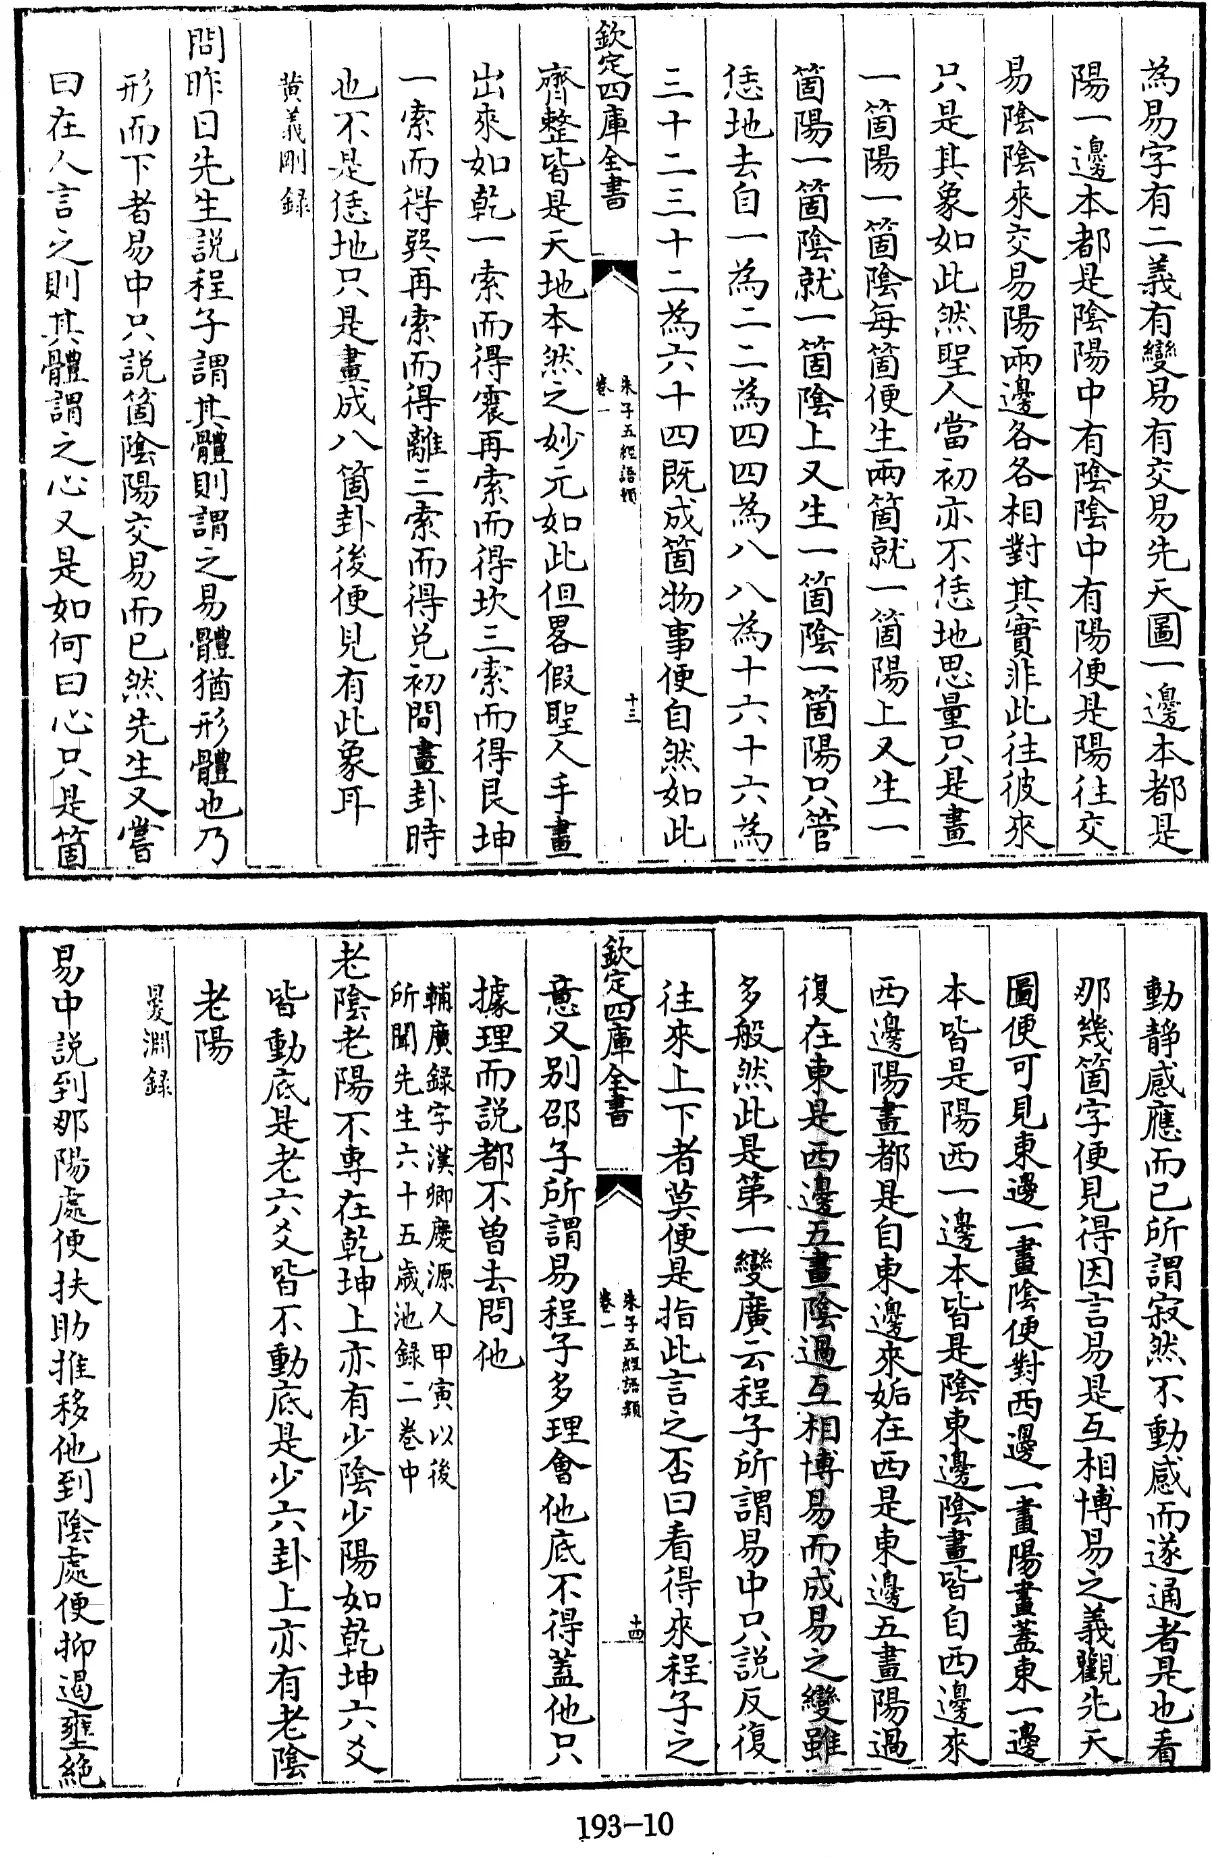 為易字有二義有變易有交易先天圖一邊本都是
陽一邊本都是陰陽中有陰陰中有陽便是陽往交
易陰陰來交易陽兩邊各各相對其實非此往彼來
只是其象如此然聖人當初亦不恁地思量只是畫
一箇陽一箇陰每箇便生兩箇就一箇陽上又生一
箇陽一箇陰就一箇陰上又生一箇陰一箇陽只管
恁地去自一為二二為四四為八八為十六十六為
三十二三十二為六十四既成箇物事便自然如此
欽定四庫全書
朱子五經語類
卷一
十三
齊整皆是天地本然之妙元如此但畧假聖人手畫
出來如乾一索而得震再索而得坎三索而得艮坤
一索而得巽再索而得離三索而得兌初間畫卦時
也不是恁地只是畫成八箇卦後便見有此象耳
黄義剛録
問昨日先生説程子謂其體則謂之易體猶形體也乃
形而下者易中只説箇陰陽交易而已然先生又嘗
曰在人言之則其體謂之心又是如何曰心只是箇
動靜感應而已所謂寂然不動感而遂通者是也看
那幾箇字便見得因言易是互相博易之義觀先天
圖便可見東邊一畫陰便對西邊一畫陽畫蓋東一邊
本皆是陽西一邊本皆是陰東邊陰畫皆自西邊來
西邊陽畫都是自東邊來姤在西是東邊五畫陽過
復在東是西邊五畫陰過互相博易而成易之變雖
多般然此是第一變廣云程子所謂易中只説反復
往來上下者莫便是指此言之否曰看得來程子之
欽定四庫全書
朱子五經語類
卷一
十四
意又别邵子所謂易程子多理會他底不得蓋他只
據理而説都不曾去問他
輔廣録字漢卿慶源人甲寅以後
所聞先生六十五歲池録二卷中
老陰老陽不專在乾坤上亦有少陰少陽如乾坤六爻
皆動底是老六爻皆不動底是少六卦上亦有老陰
老陽
㬊淵録
易中説到那陽處便扶助推移他到陰處便抑遏壅絶
193-10